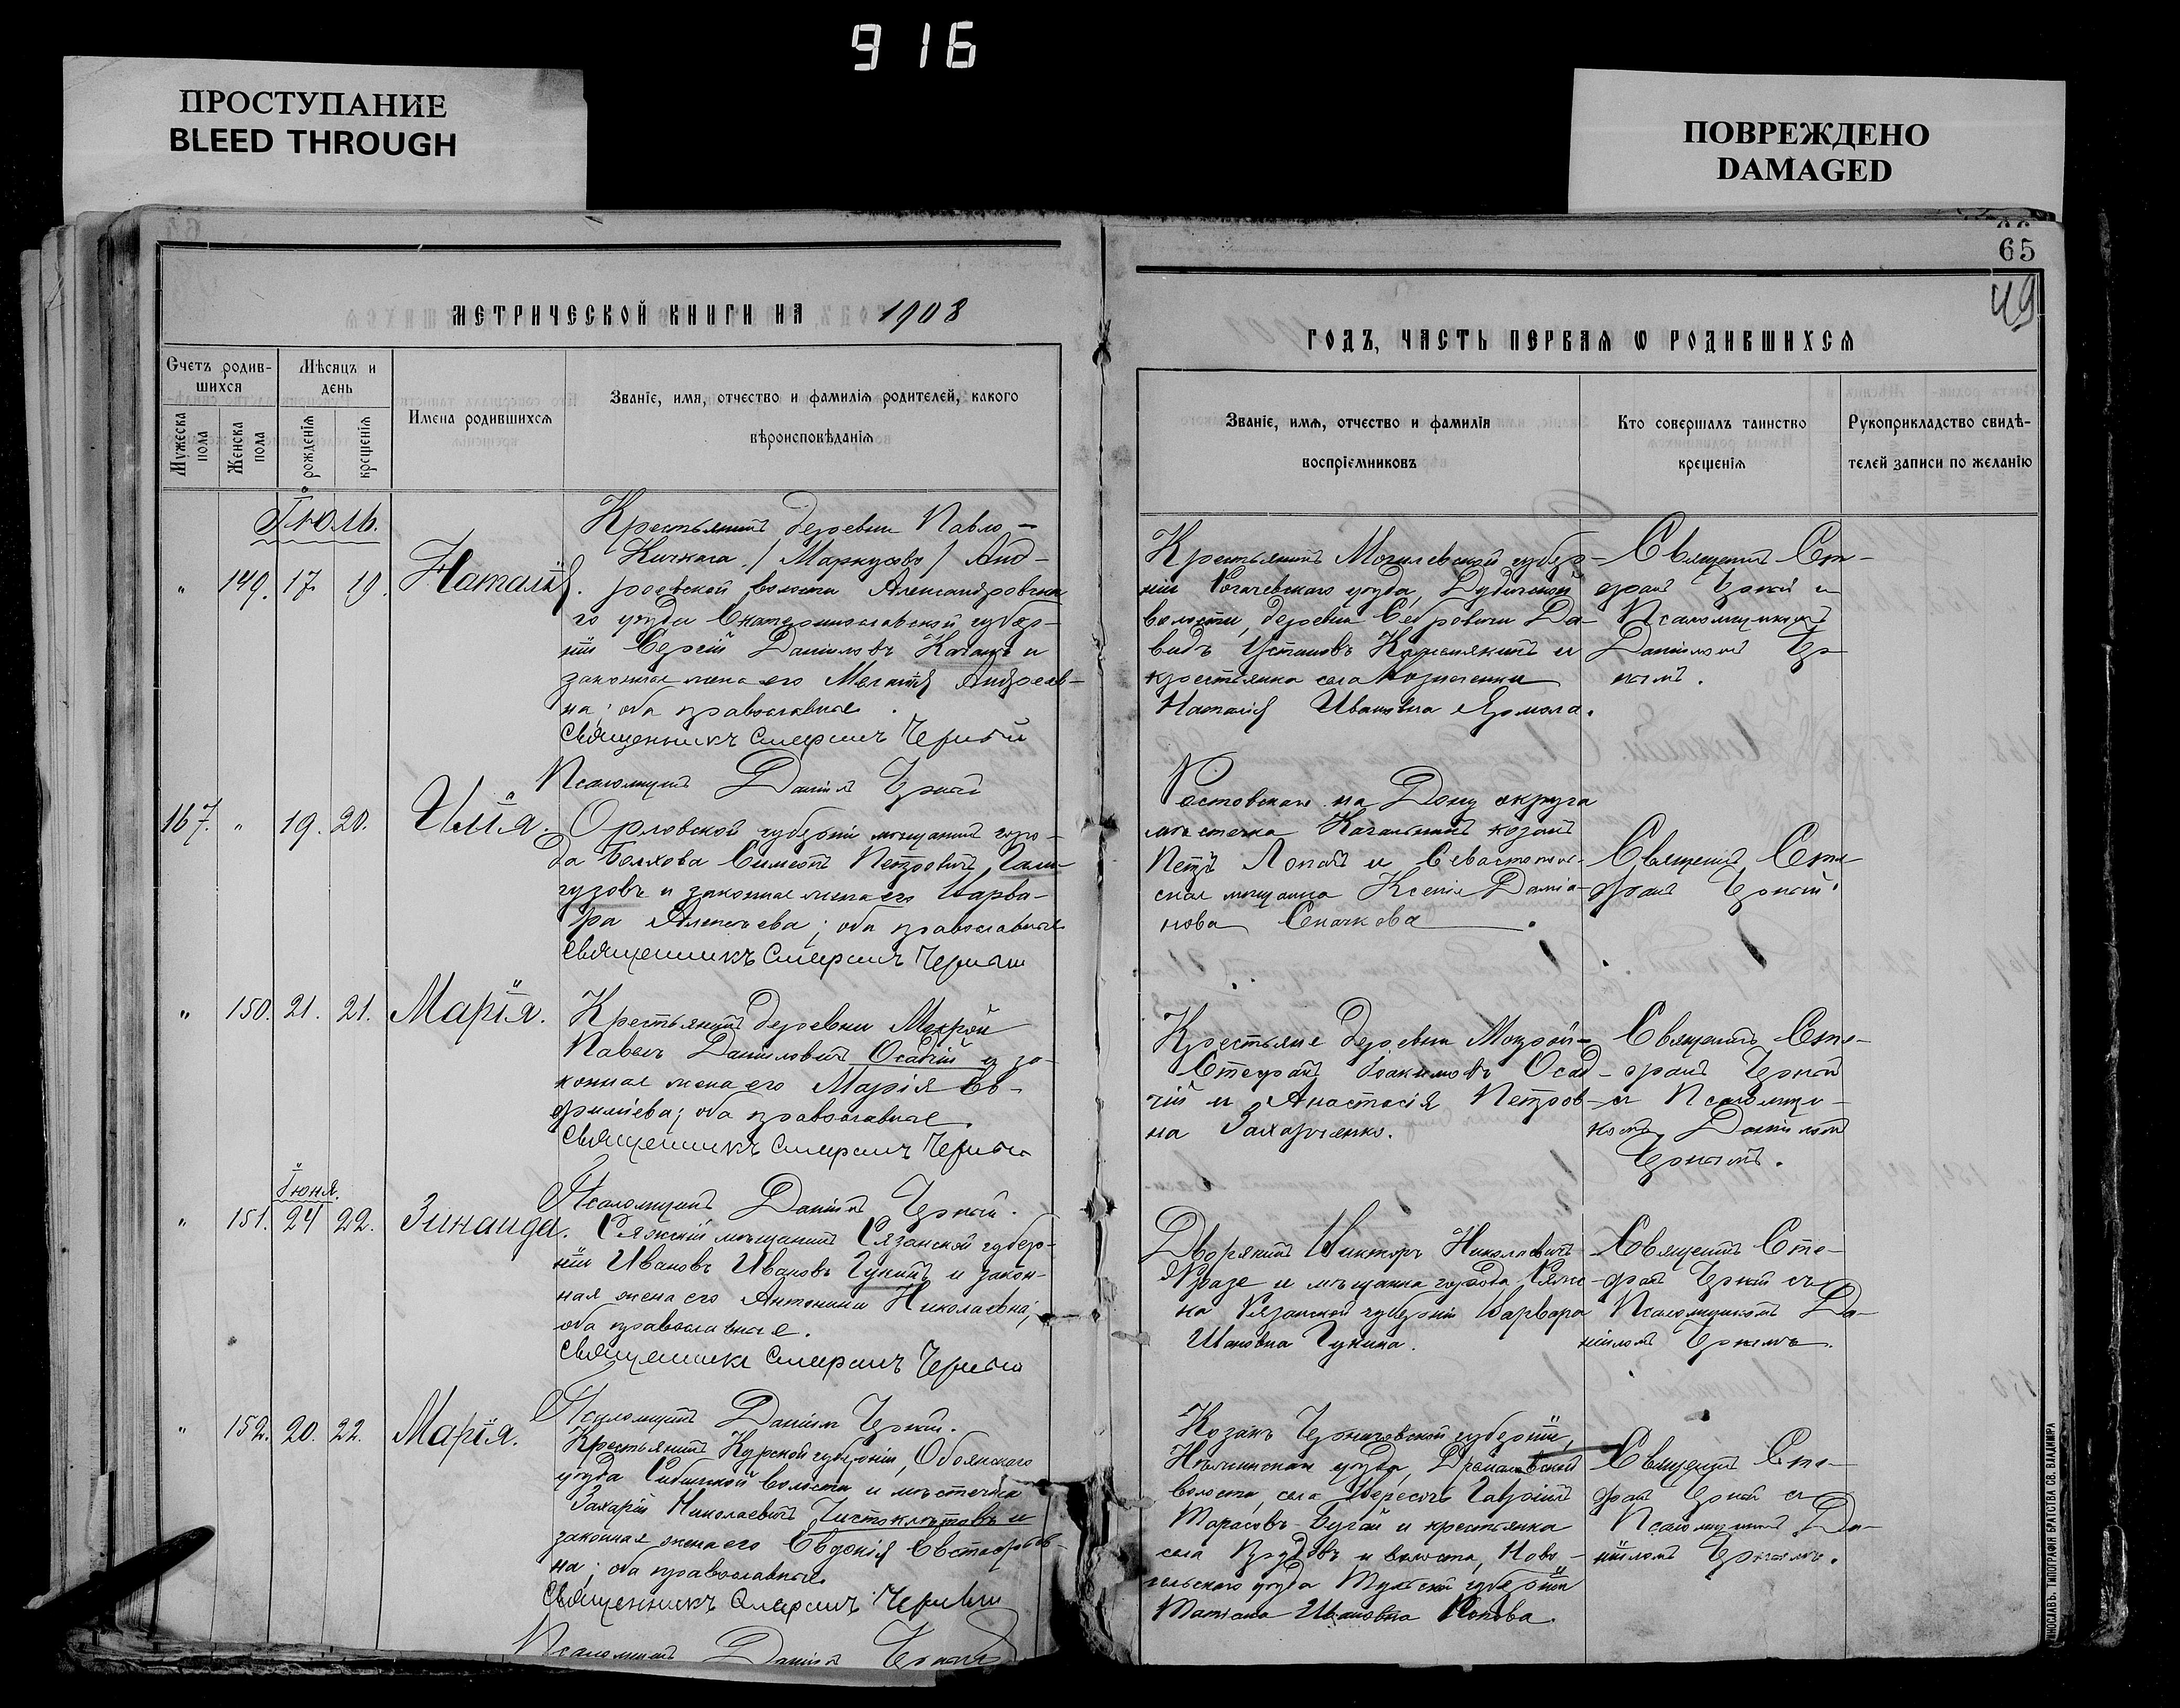 916
ПРОСТУПАНИЕ
BLEED THROUGH
ПОВРЕЖДЕНО
DAMAGED
65
49
МЕТРИЧЕСКОЙ КНИГИ НА 1908
ГОДЪ, ЧАСТЬ ПЕРВАЯ Ѡ РОДИВШИХСЯ
Счетъ родив-
шихся
Мужеска пола
Женска пола
Мѣсяцъ и день
рожденія
крещенія
Имена родившихся
Званіе, имя, отчество и фамилія родителей, какого
вѣроисповѣданія
Званіе, имя, отчество и фамилія
воспріемниковъ
Кто совершалъ таинство
крещенія
Рукоприкладство свидѣ-
телей записи по желанію
Іюль.
" 149. 17. 19. Наталія.
Крестьянинъ деревни Павло-
Кичкаса / Маркусово / Анд-
реевской волости Александровска
го уѣзда Екатеринославской губер-
ніи Сергій Даніиловъ и
законная жена его Андреев-
на; оба православные.
Священникъ Стефанъ Черный
Псаломщикъ Даніилъ Черный
Крестьянинъ Могилевской губер-
ніи Рогачевскаго уѣзда,
волости, деревни Да-
видъ и
крестьянка села
Наталія Ивановна Ярмола.
Священникъ Сте-
фанъ Черный и
Псаломщикомъ
Даніиломъ Чер-
нымъ.
167. " 19. 20. Илія.
Орловской губерніи мѣщанинъ горо-
да Болхова Симеонъ Петровичъ Гали-
гузовъ и законная жена его Варва-
ра Алексѣева; оба православные
Священникъ Стефанъ Черный
Ростовскаго на Дону округа
мѣстечка Кагальника козакъ
Петръ Лопай и Севастополь-
ская мѣщанка Ксенія Даміа-
нова Сначкова.
Священникъ Сте-
фанъ Черный.
" 150. 21. 21. Марія.
Крестьянинъ деревни Мокрой
Павелъ Даніиловичъ Осадчій и за-
конная жена его Марія Ев-
фиміева; оба православные.
Священникъ Стефанъ Черный
Псаломщикъ Даніилъ Черный.
Крестьяне деревни Мокрой-
Стефанъ Іоакимовъ Осад-
чій и Анастасія Петров-
на Захарченко.
Священникъ Сте-
фанъ Черный
съ Псаломщи-
комъ Даніиломъ
Чернымъ.
Іюня.
" 151. 24 22. Зинаида.
Ряжскій мѣщанинъ Рязанской губер-
ніи Ивановъ Ивановъ Гунинъ и закон-
ная жена его Антонина Николаевна;
оба православные.
Священникъ Стефанъ Черный
Псаломщикъ Даніилъ Черный.
Дворянинъ Викторъ Николаевичъ
и мѣщанка города Ряжс-
ка Рязанской губерніи Варвара
Ивановна Гунина.
Священникъ Сте-
фанъ Черный съ
Псаломщикомъ Да-
ніиломъ Чернымъ.
" 152. 20. 22. Марія.
Крестьянинъ Курской губерніи, Обоянскаго
уѣзда волости и мѣстечка
Захарій Николаевичъ Чистоклѣтовъ и
законная жена его Евдокія Евстафіев-
на; оба православные
Священникъ Стефанъ Черный
Псаломщикъ Даніилъ Черный
Козакъ Черниговской губерніи,
уѣзда,
волости, села Гавріилъ
Тарасовъ Бугай и крестьянка
села и волости, Ново-
сильскаго уѣзда Тульской губерніи
Татіана Ивановна Попова.
Священникъ Сте-
фанъ Черный съ
Псаломщикомъ Да-
ніиломъ Чернымъ.
ТИПОГРАФІЯ БРАТСТВА СВ. ВЛАДИМІРА